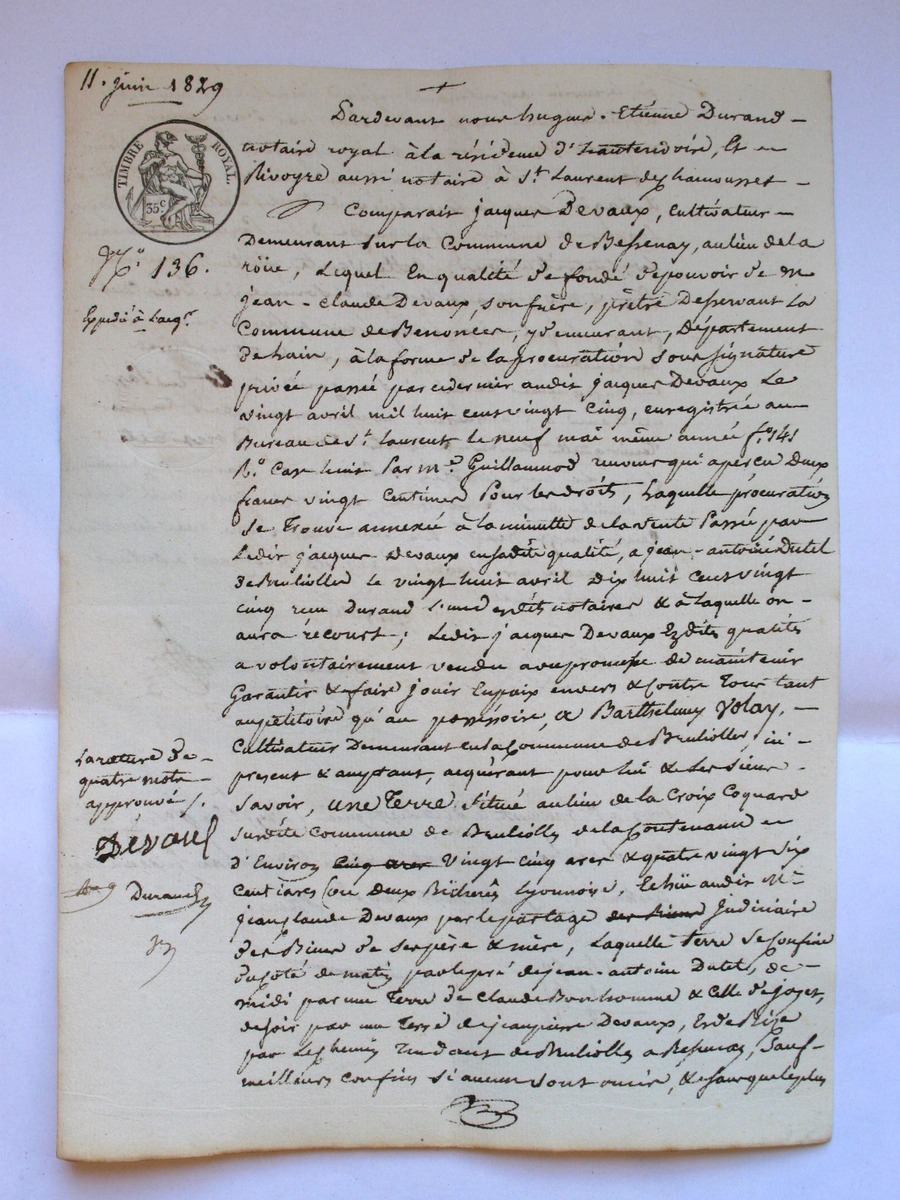 11. juin 1829
TIMBRE ROYAL.
35 c
N.o 136.
Expédié à l'acq.r
Pardevant nous hugues-Etienne Durand
notaire royal à la résidence d'hauterivoire, Et
Rivoyre aussi notaire à St. Laurent de chamousset
Comparait jacques Devaux, cultivateur
Demeurant sur la Commune de Bessenay, au lieu de la
röüe, Lequel En qualité de fondé de pouvoir de m
jean-claude Devaux, son frère, prêtre Desservant La
Commune de Benonces, y demeurant, Département
de hain, à la forme de la procuration sous signature
privée passée par ce dernier audit jacques Devaux Le
vingt avril mil huit cent vingt cinq, enregistrée au
Bureau de St. laurent le neuf mai même année f.o 141
R.o Case huit Par m.r Guillaumod receveur qui a perçu Deux
francs vingt Centimes Pour les droits, Laquelle procuration
se Trouve annexée à la minutte de la vente Passée par
Ledit jacques Devaux en sadite qualité, a jean-antoine Dutel
de Brullioles le vingt huit avril Dix huit Cent vingt
cinq reçu Durand l'un desdits notaires & à laquelle on
aura récourt; Ledit jacques Devaux Esdites qualités
a volontairement vendu avec promesse de maintenir
Garantir & faire jouir En paix envers & Contre Tous tant
au pétitoire qu'au possessoire, a Barthelemy Volay,
Cultivateur Demeurant en la Commune de Brullioles, ici
présent & acceptant, acquérant pour lui & les siens
Savoir, une Terre Située au lieu de la Croix Coquard
Surdite Commune de Brullioles de la Contenance
d'Environ cinq ares Vingt cinq ares & quatre vingt six
Centiares (ou deux Bicherées Lyonnoise, Echüe audit M.r
jean claude Devaux par le partage des biens Judiciaire
des Biens de ses père & mère, Laquelle terre se Confine
du Coté de matin par le pré de jean-antoine Dutel, de
midi par une Terre de Claude Bonhomme & Celle de jozet,
de soir par une Terre de jean pierre Devaux, Et de Bize
par Le chemin Tendant de Brullioles a Bessenay, Sauf
meilleurs confins si aucun sont omis, & de sauf que le plus
La rature de
quatre mots
approuvé
Devaux
Durand